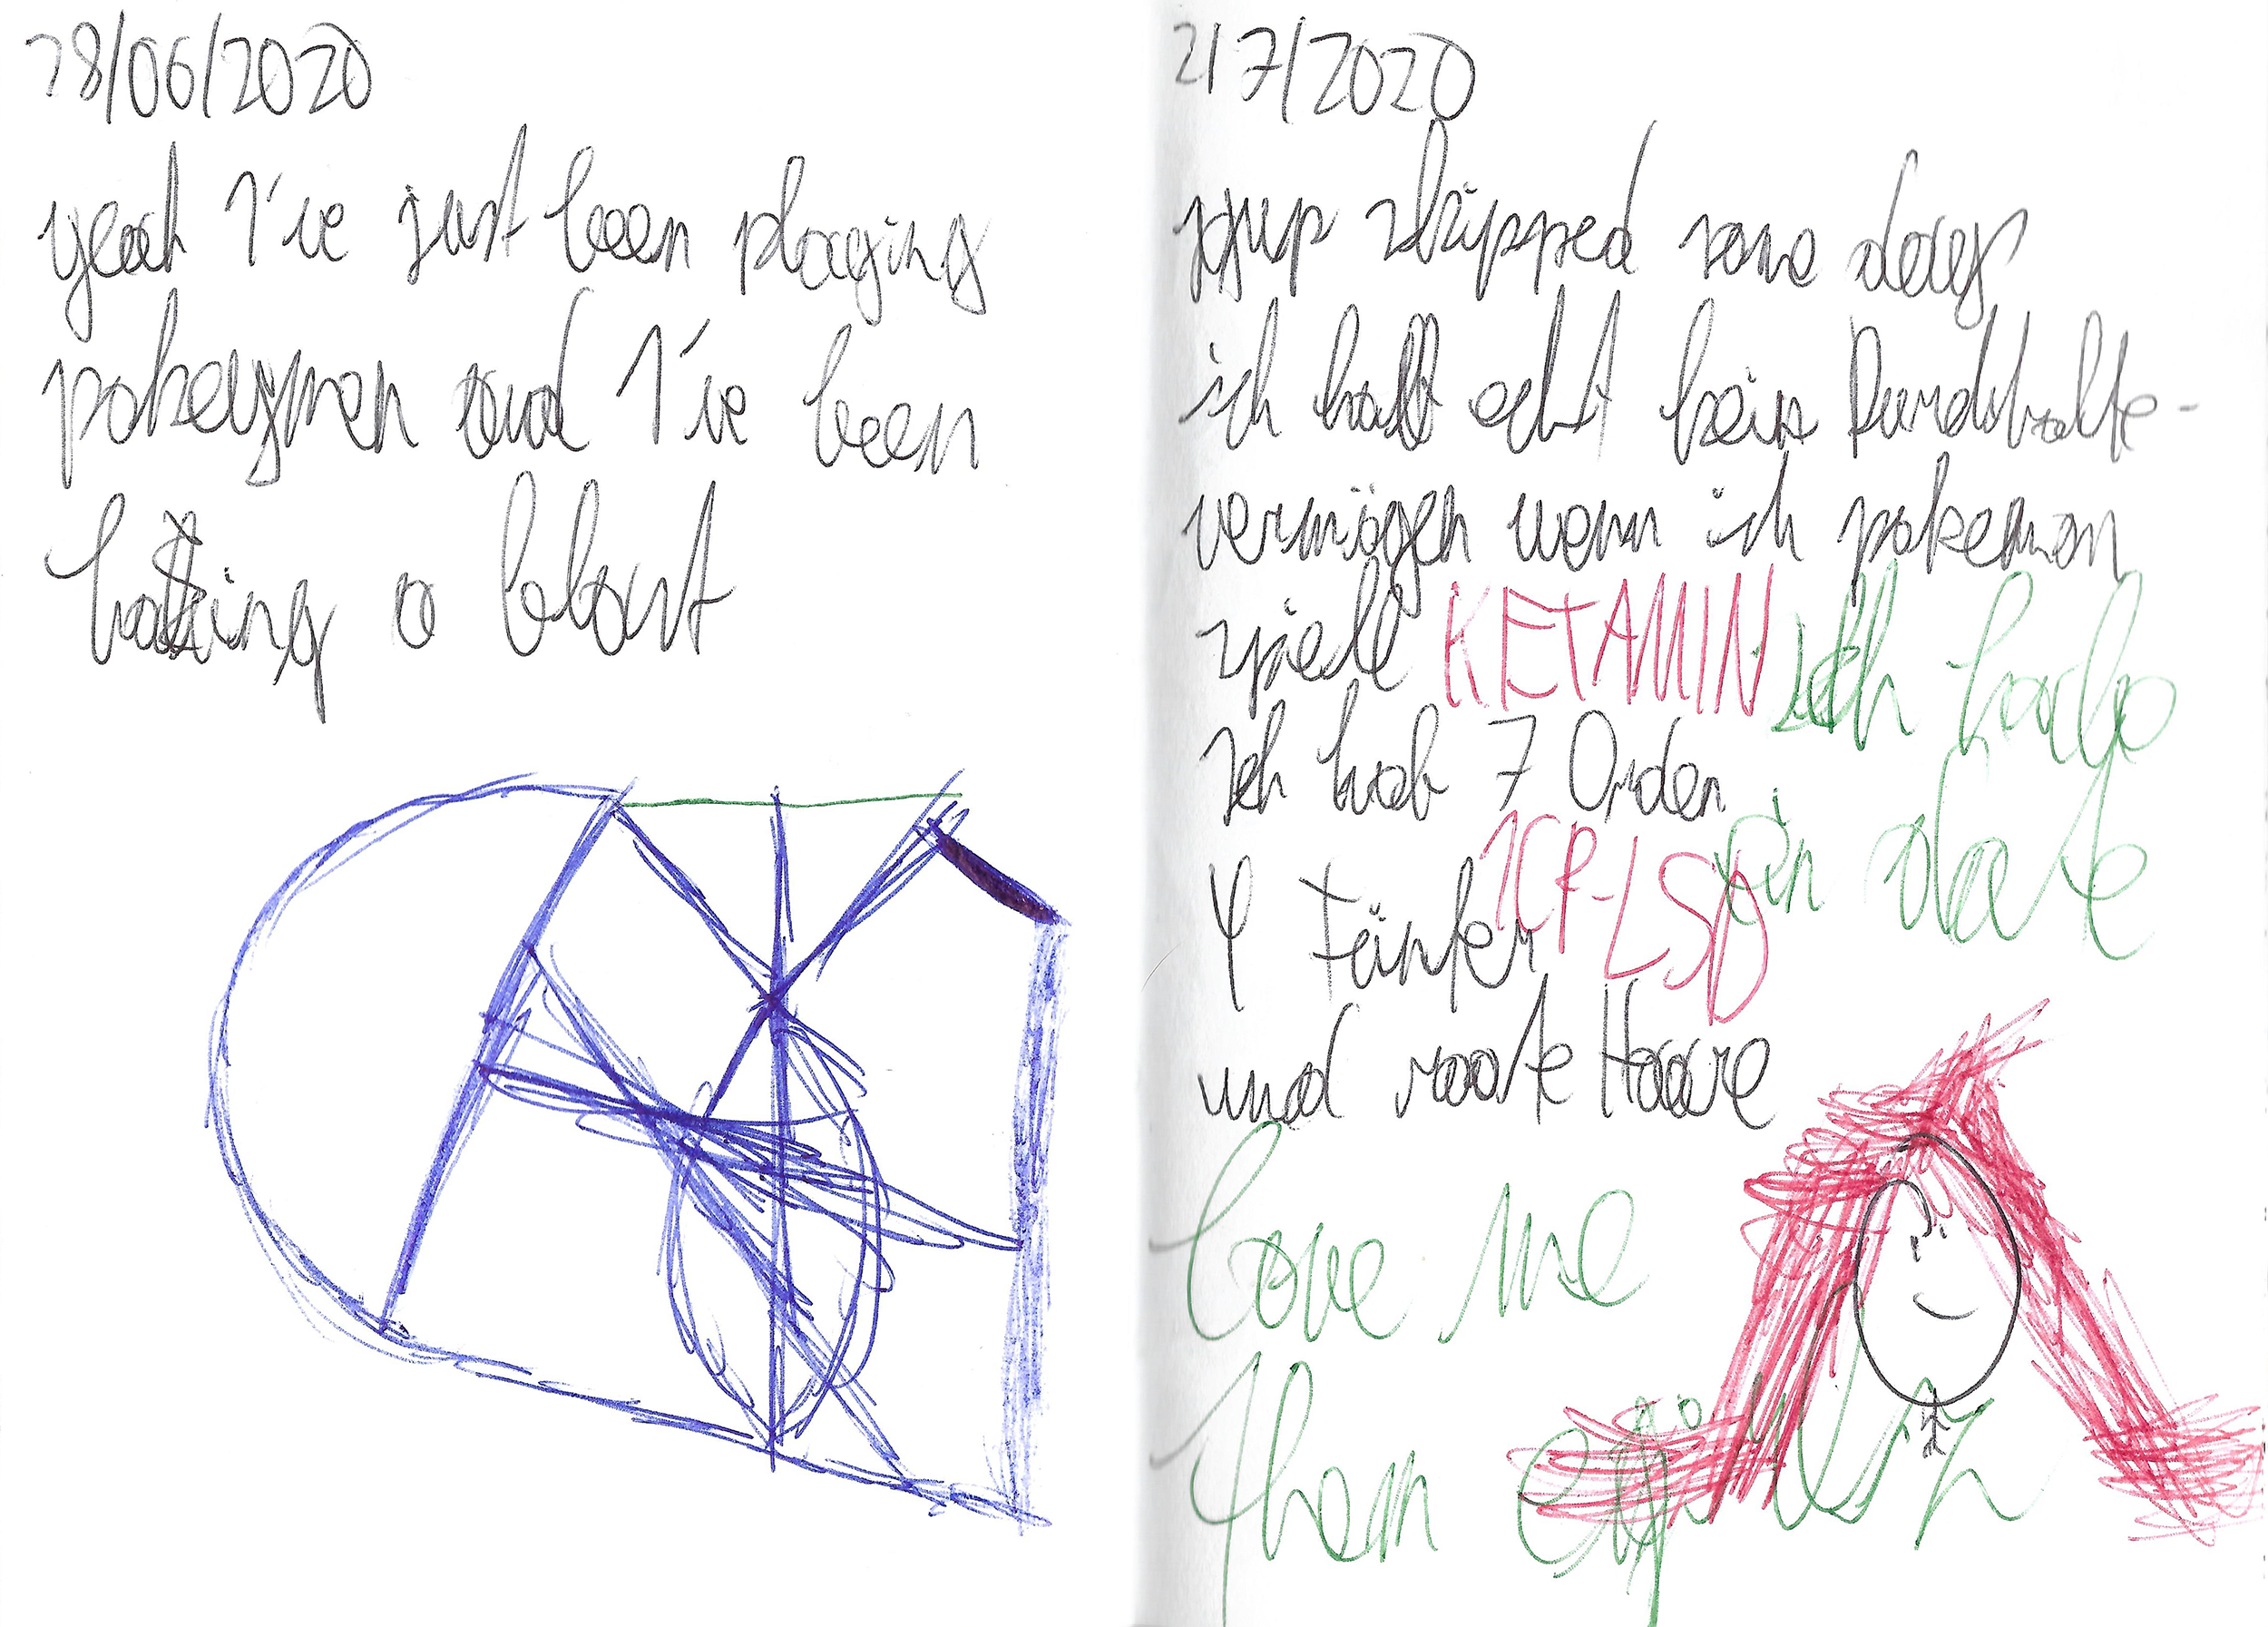 28/06/2020
yeah I've just been playing
pokeymon and I've been
having a blast
2/7/2020
yup skipped some days
ich hab echt kein Durchhalte-
vermögen wenn ich pokemon
spiele KETAMIN Ich habe
Ich hab 7 Orden
ein date
4 Fünfer 1CP-LSD
und roote Haare
love me
them girlsz